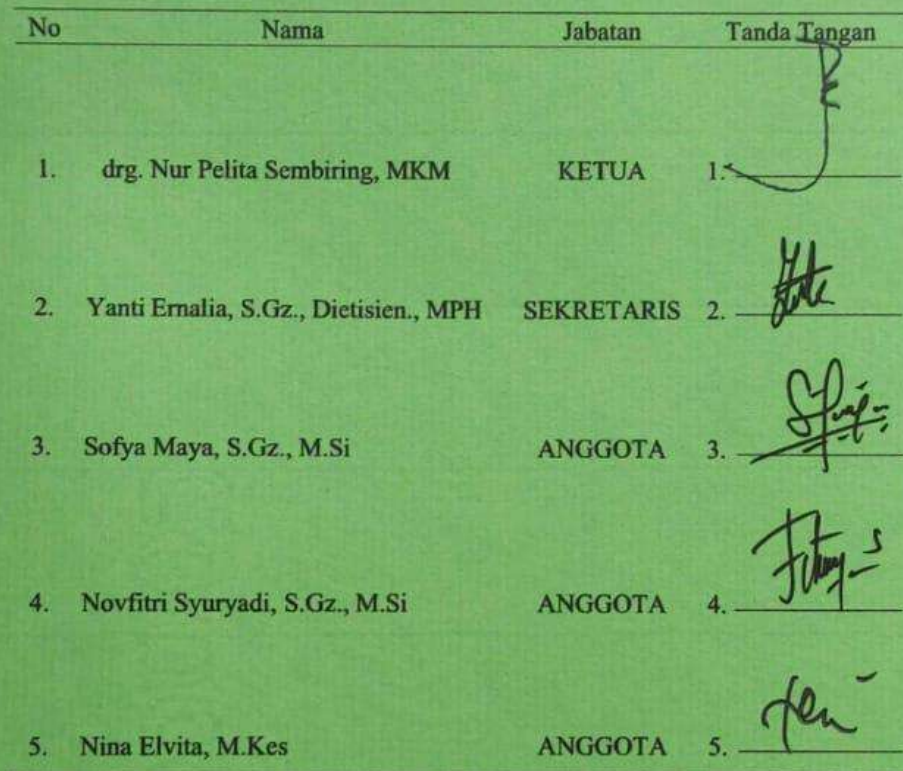 No Nama Jabatan Tanda Tangan
1. drg. Nur Pelita Sembiring, MKM KETUA 1.
2. Yanti Ernalia, S.Gz., Dietisien., MPH SEKRETARIS 2.
3. Sofya Maya, S.Gz., M.Si ANGGOTA 3.
4. Novfitri Syuryadi, S.Gz., M.Si ANGGOTA 4.
5. Nina Elvita, M.Kes ANGGOTA 5.